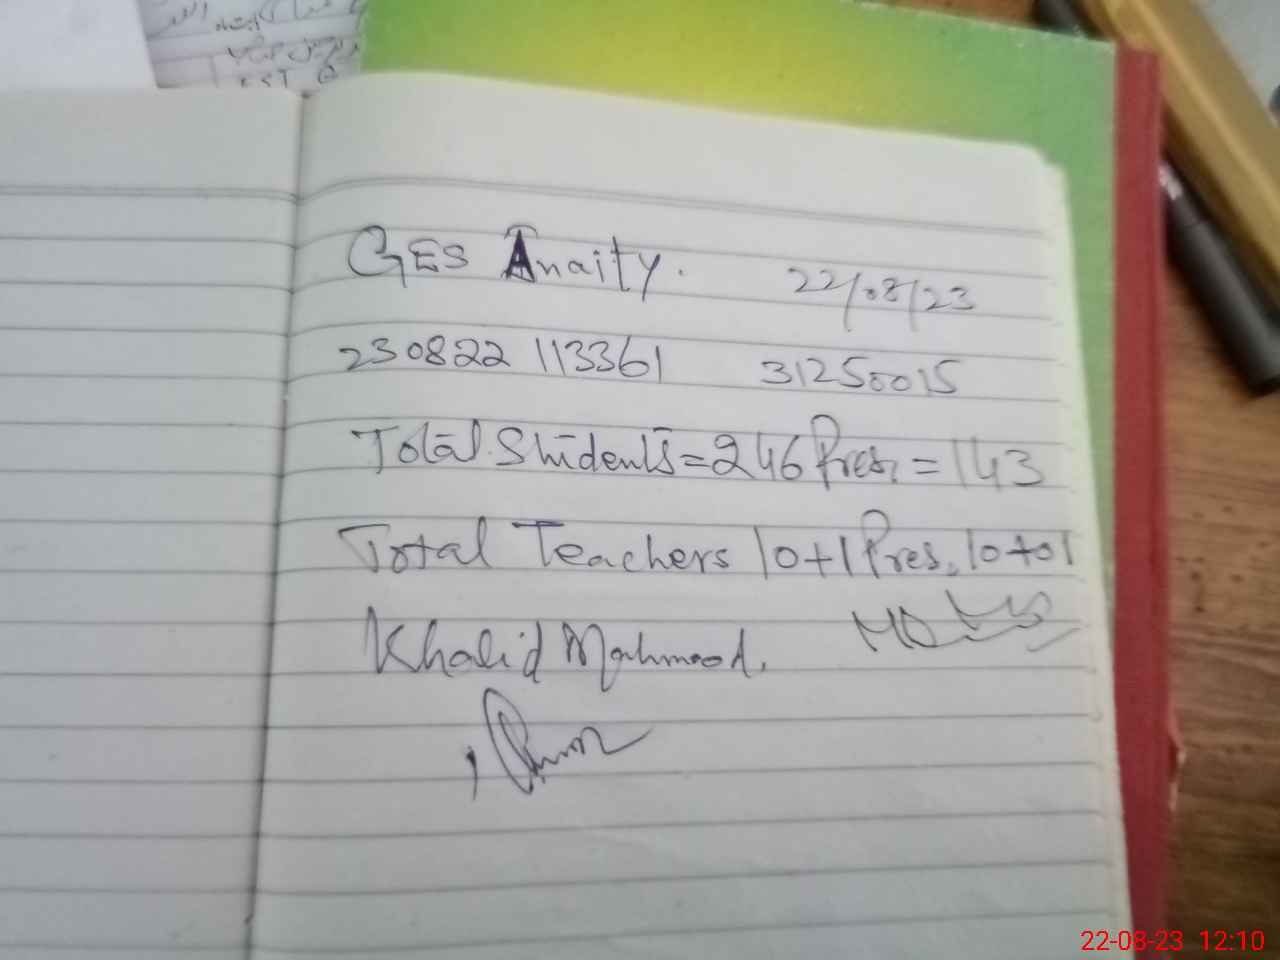 EST
GES Anaity. 22/08/23
230822 113361 31250015
Total Students=246 Pres,=143
Total Teachers 10+1 Pres, 10+01
Khalid Mahmood.
22-08-23 12:10